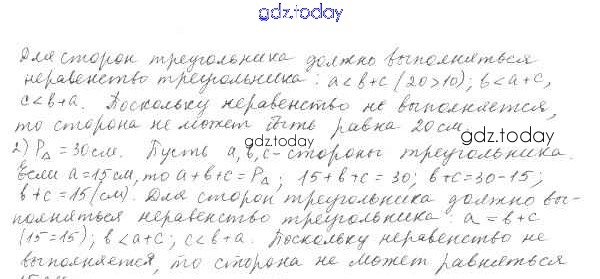 gdz.today
Для сторон треугольника должно выполняться
неравенство треугольника: a<b+c (20>10); b<a+c,
c<b+a. Поскольку неравенство не выполняется,
то сторона не может быть равна 20см.
gdz.today
gdz.today
2) P△=30см. Пусть a,b,c-стороны треугольника.
Если a=15см, то a+b+c=P△; 15+b+c=30; b+c=30-15;
b+c=15(см). Для сторон треугольника должно вы-
полняться неравенство треугольника: a=b+c
(15=15); b<a+c; c<b+a. Поскольку неравенство не
выполняется, то сторона не может равняться